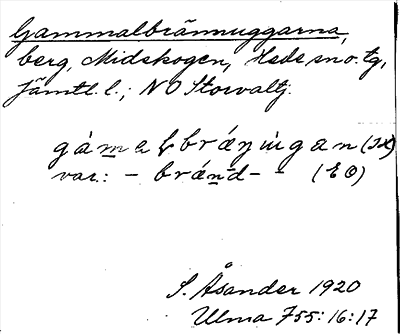 Gammalbrännuggarna,
berg, Midskogen, Hede sn o. tg,
Jämtl. l.; NO Storvaltj.
var.: - bränd- - (EO)
S. Åsander 1920
Ulma 755:16:17